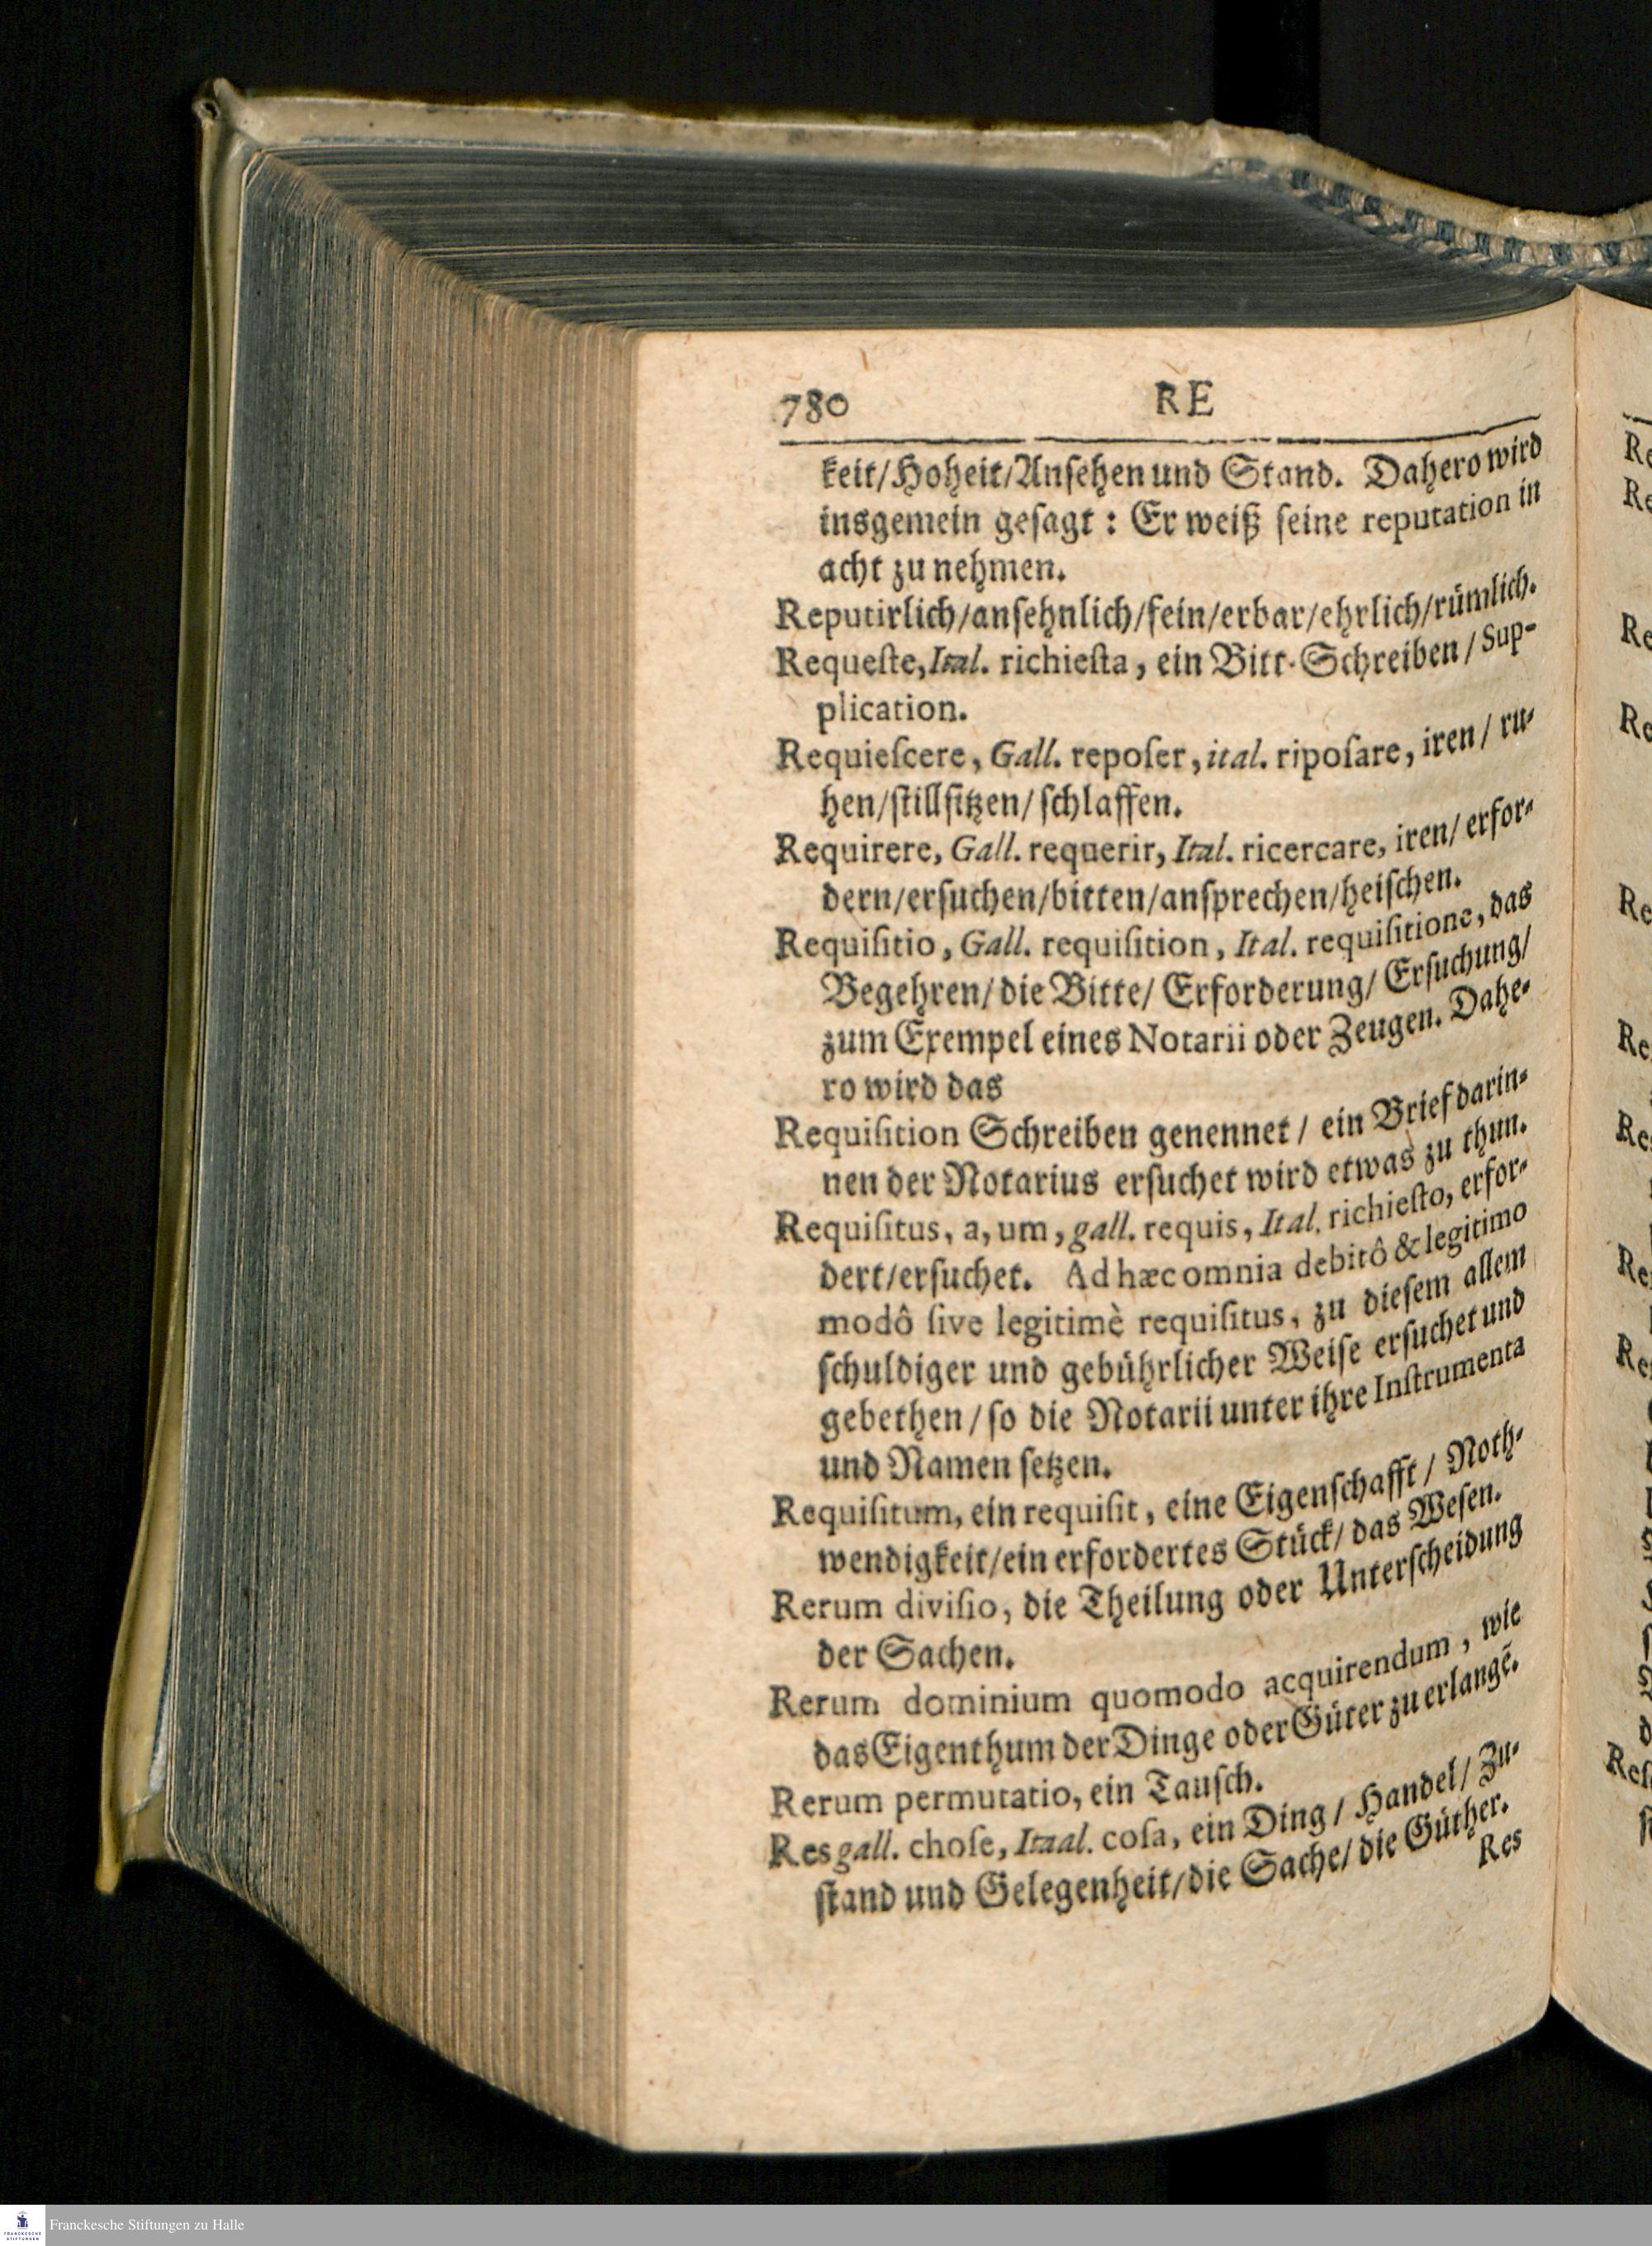 780 RE
keit/Hoheit/Ansehen und Stand. Dahero wird
insgemein gesagt: Er weiß seine reputation in
acht zu nehmen.
Reputirlich/ansehnlich/fein/erbar/ehrlich/rümlich.
Requeste, Ital. richiesta, ein Bitt-Schreiben/Sup-
plication.
Requiescere, Gall. reposer, ital. riposare, iren/ ru-
hen/stillsitzen/schlaffen.
Requirere, Gall. requerir, Ital. ricercare, iren/ erfor-
dern/ersuchen/bitten/ansprechen/heischen.
Requisitio, Gall. requisition, Ital. requisitione, das
Begehren/die Bitte/ Erforderung/ Ersuchung/
zum Exempel eines Notarii oder Zeugen. Dahe-
ro wird das
Requisition Schreiben genennet/ ein Brief darin-
nen der Notarius ersuchet wird etwas zu thun.
Requisitus, a, um, gall. requis, Ital. richiesto, erfor-
dert/ersuchet. Ad hæc omnia debitô & legitimo
modô sive legitimè requisitus, zu diesem allem
schuldiger und gebührlicher Weise ersuchet und
gebethen/so die Notarii unter ihre Instrumenta
und Namen setzen.
Requisitum, ein requisit, eine Eigenschafft/ Noth-
wendigkeit/ein erfordertes Stück/das Wesen.
Rerum divisio, die Theilung oder Unterscheidung
der Sachen.
Rerum dominium quomodo acquirendum, wie
das Eigenthum der Dinge oder Güter zu erlangē.
Rerum permutatio, ein Tausch.
Res gall. chose, Itaal. cosa, ein Ding/ Handel/ Zu-
stand und Gelegenheit/die Sache/ die Güther.
Res
Franckesche Stiftungen zu Halle